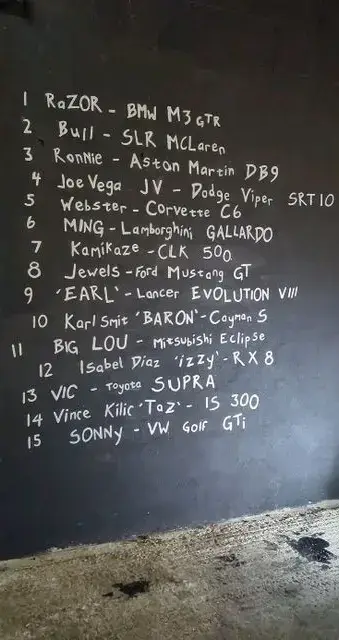 1 RaZOR - BMW M3 GTR
2 Bull - SLR McLaren
3 RonNie - Aston Martin DB9
4 Joe Vega JV - Dodge Viper SRT10
5 Webster - Corvette C6
6 MING - Lamborghini GALLARDO
7 Kamikaze - CLK 500
8 Jewels - Ford Mustang GT
9 'EARL' - Lancer EVOLUTION VIII
10 Karl Smit 'BARON' - Cayman S
11 BIG LOU - Mitsubishi Eclipse
12 Isabel Diaz 'izzy' - RX 8
13 VIC - Toyota SUPRA
14 Vince Kilic 'Taz' - IS 300
15 SONNy - VW Golf GTi